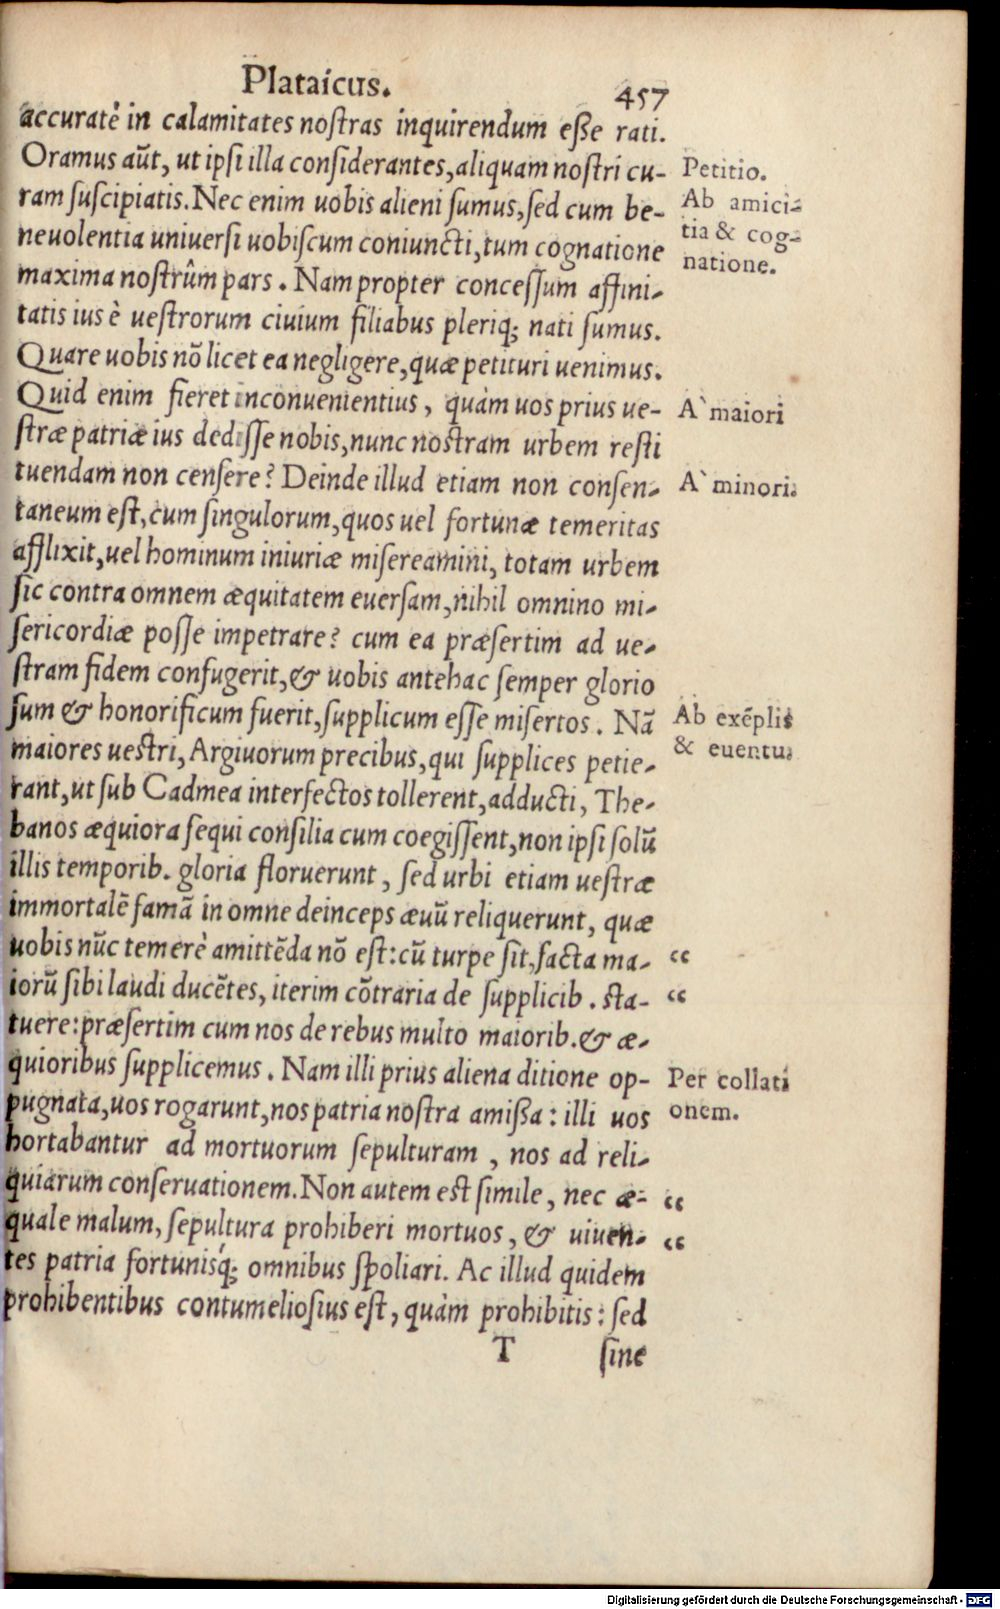 Plataicus. 457
accuratè in calamitates noſtras inquirendum eſſe rati.
Oramus aūt, ut ipſi illa conſiderantes, aliquam noſtri cu-
Petitio.
ram ſuſcipiatis. Nec enim uobis alieni ſumus, ſed cum be-
Ab amici-
neuolentia uniuerſi uobiſcum coniuncti, tum cognatione
tia & cog-
maxima noſtrûm pars. Nam propter conceſſum affini-
natione.
tatis ius è ueſtrorum ciuium filiabus pleriq; nati ſumus.
Quare uobis nō licet ea negligere, quæ petituri uenimus.
Quid enim fieret inconuenientius, quàm uos prius ue-
A` maiori
ſtræ patriæ ius dediſſe nobis, nunc noſtram urbem reſti
tuendam non cenſere? Deinde illud etiam non conſen-
A` minori.
taneum eſt, cum ſingulorum, quos uel fortunæ temeritas
afflixit, uel hominum iniuriæ miſereamini, totam urbem
ſic contra omnem æquitatem euerſam, nihil omnino mi-
ſericordiæ poſſe impetrare? cum ea præſertim ad ue-
ſtram fidem confugerit, & uobis antehac ſemper glorio
ſum & honorificum fuerit, ſupplicum eſſe miſertos. Nã
Ab exēplis
maiores ueſtri, Argiuorum precibus, qui ſupplices petie-
& euentu.
rant, ut ſub Cadmea interfectos tollerent, adducti, The-
banos æquiora ſequi conſilia cum coegiſſent, non ipſi ſolū
illis temporib. gloria floruerunt, ſed urbi etiam ueſtræ
immortalē famã in omne deinceps æuū reliquerunt, quæ
uobis nūc temerè amittēda nō eſt: cū turpe ſit, facta ma-
“
iorū ſibi laudi ducētes, iterim cōtraria de ſupplicib. ſta-
“
tuere: præſertim cum nos de rebus multo maiorib. & æ-
quioribus ſupplicemus. Nam illi prius aliena ditione op-
Per collati
pugnata, uos rogarunt, nos patria noſtra amiſſa: illi uos
onem.
hortabantur ad mortuorum ſepulturam, nos ad reli-
quiarum conſeruationem. Non autem eſt ſimile, nec æ-
“
quale malum, ſepultura prohiberi mortuos, & uiuen-
“
tes patria fortunisq́; omnibus ſpoliari. Ac illud quidem
prohibentibus contumelioſius eſt, quàm prohibitis: ſed
T ſine
Digitalisierung gefördert durch die Deutsche Forschungsgemeinschaft - DFG